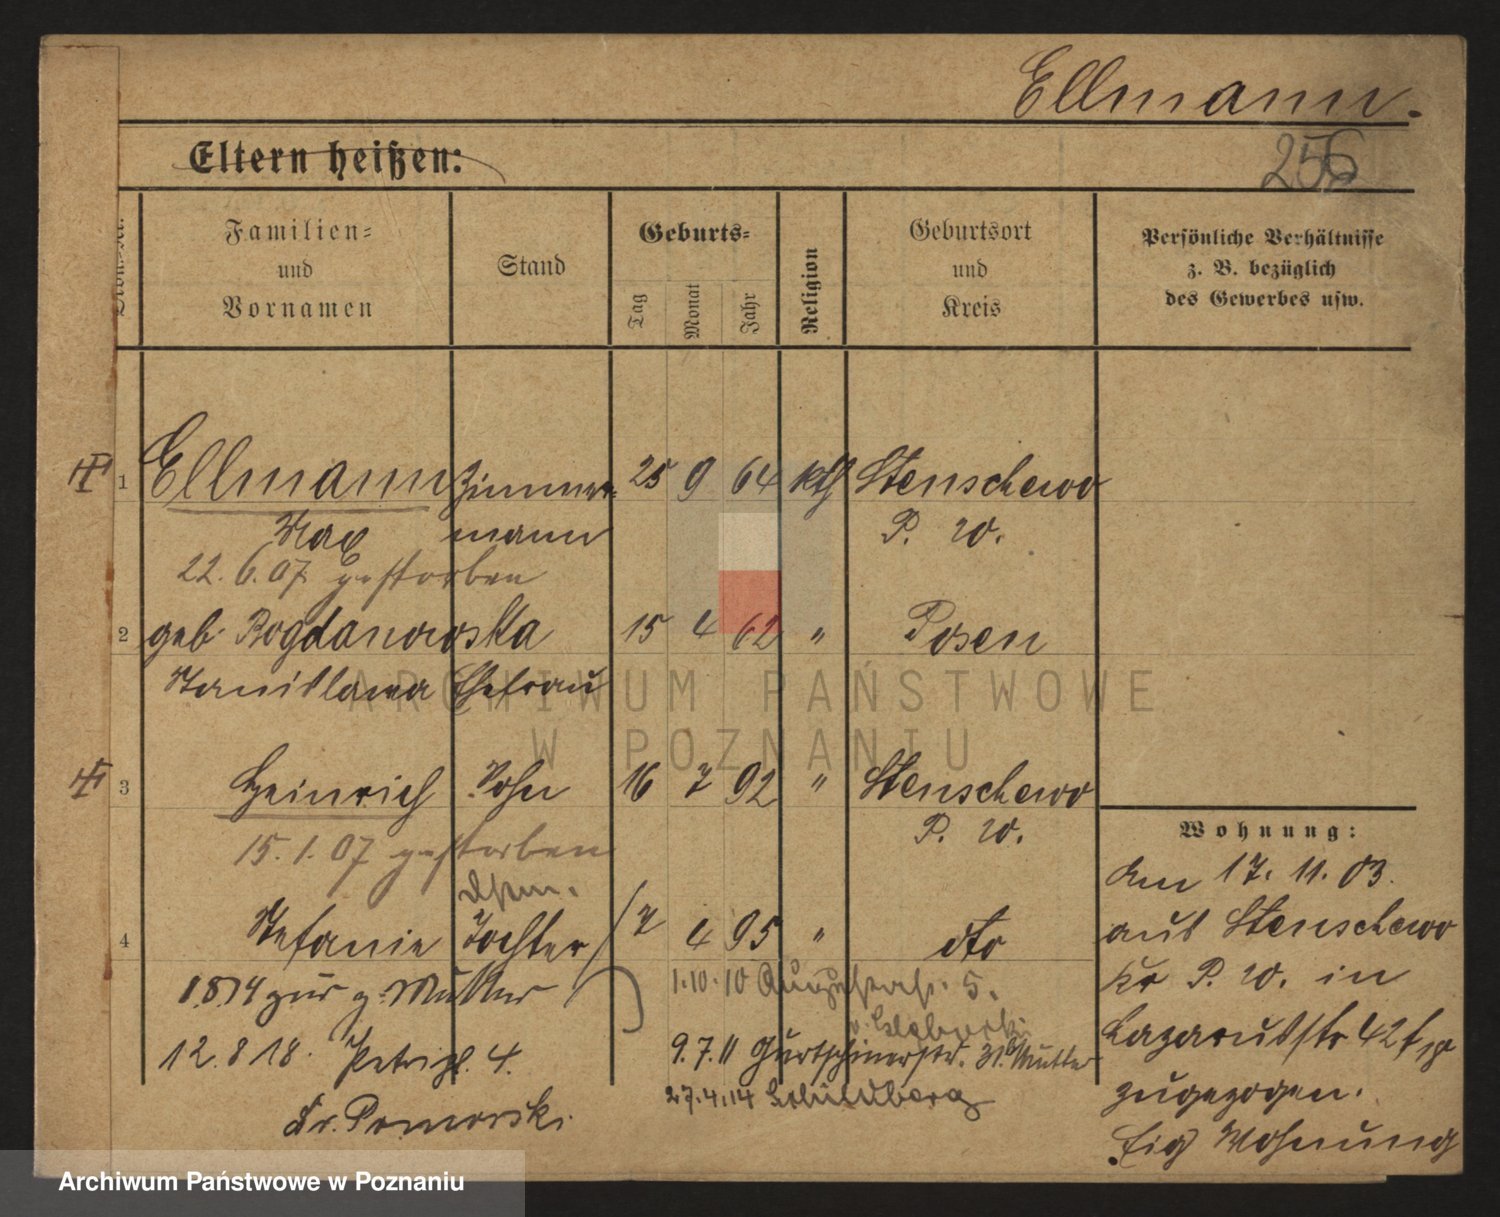 Ellmann.
Eltern heißen:
256
Familien=
und
Vornamen
Stand
Geburts=
Tag
Monat
Jahr
Religion
Geburtsort
und
Kreis
Persönliche Verhältnisse
z. B. bezüglich
des Gewerbes usw.
1 Ellmann Zimmer= 25 9 64 kth Stenschewo
Max mann P. W.
22. 6. 07 gestorben
2 geb. Bogdanowska 15 4 62 " Posen
Stanislawa Ehefrau
3 Heinrich Sohn 16 7 92 " Stenschewo
P. W.
15. 1. 07 gestorben
4 Stefanie Tochter 7 4 95 " dto
1.8.14 zur g. Mutter
1.10.10 Augustastr. 5.
12. 8 18. Petripl. 4.
9.7.11 Gurtschinerstr. Mutter
27.4.14 Schildberg
Pomorski.
Wohnung:
Am 17. 11. 03.
aus Stenschewo
Kr P. W. in
Lazarusstr 42
zugezogen.
Eig Wohnung
ARCHIWUM PAŃSTWOWE
W POZNANIU
Archiwum Państwowe w Poznaniu